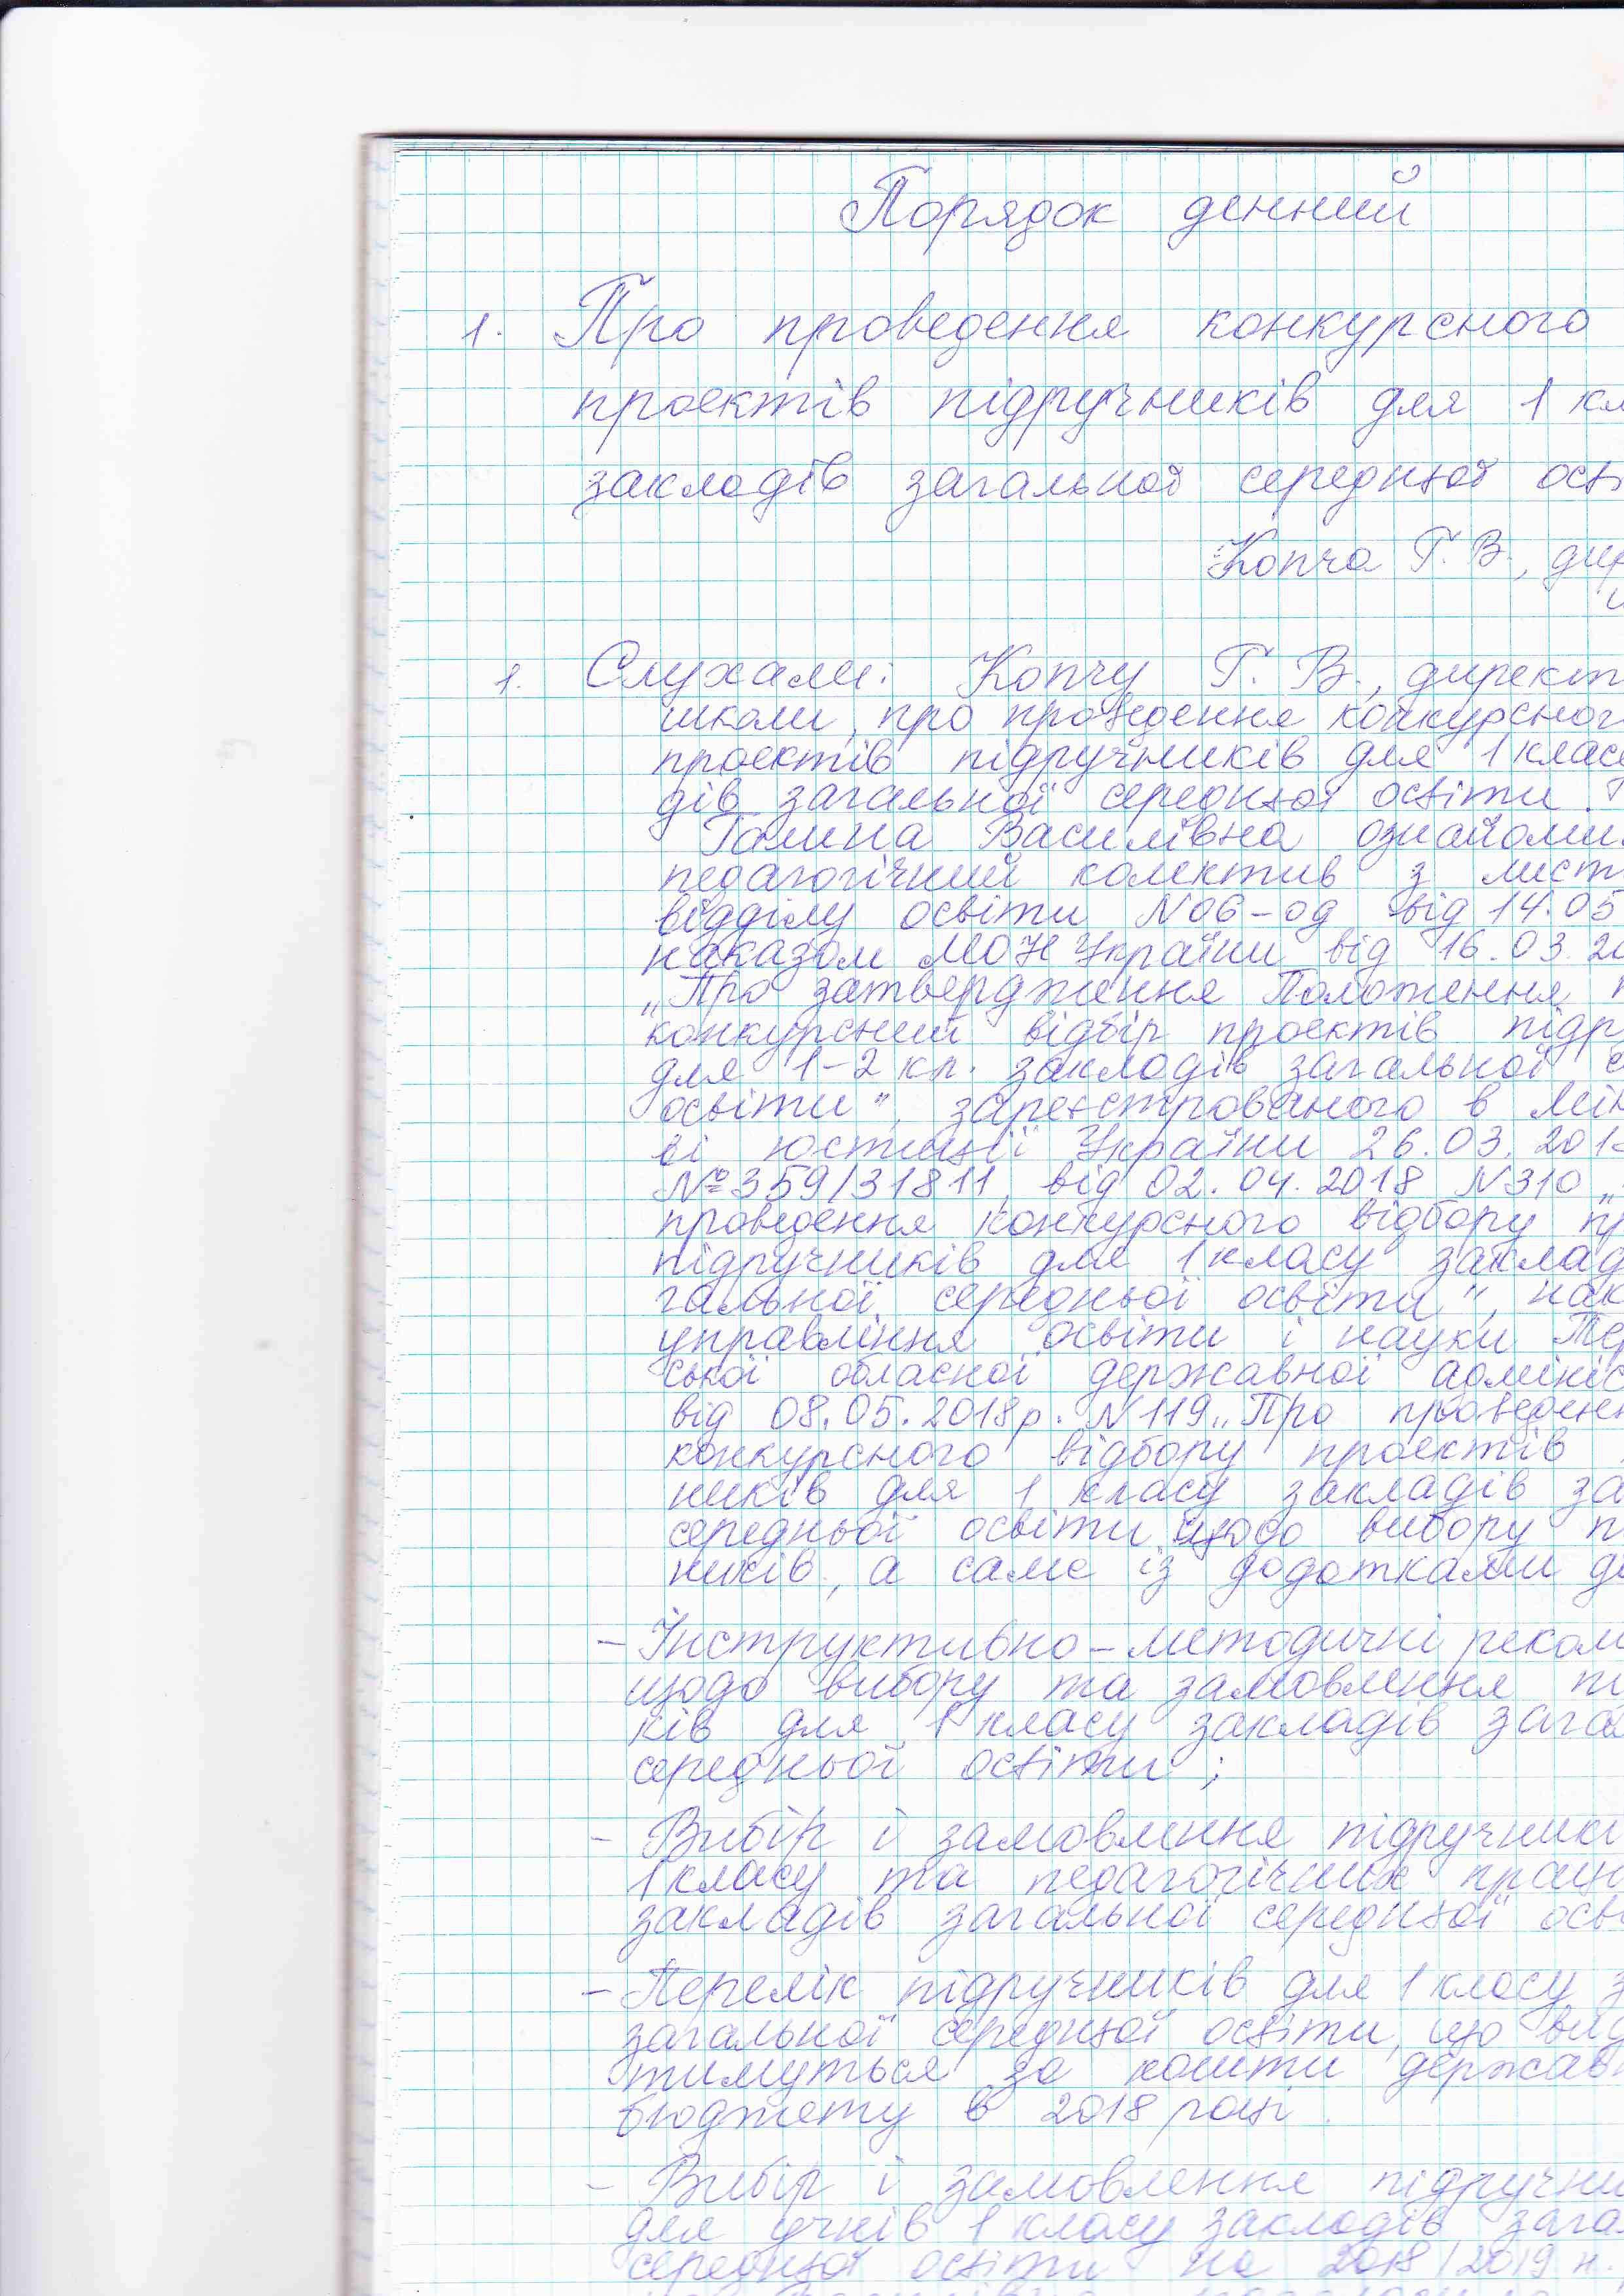 Порядок денний
1. Про проведення конкурсного
проектів підручників для 1 кл
закладів загальної середньої осві
Копча Г. В., дир
1. Слухали: Копчу Г. В., директ
школи, про проведення конкурсног
проектів підручників для 1 клас
дів загальної середньої освіти.
Галина Василівна ознайоми
педагогічний колектив з лист
відділу освіти №06-од від 14.05
наказом МОН України від 16.03.20
„Про затвердження Положення п
конкурсний відбір проектів підр
для 1-2 кл. закладів загальної с
освіти", зареєстрованого в Мін
сі юстиції України 26.03.201
№359/31811, від 02.04.2018 №310 „
проведення конкурсного відбору пр
підручників для 1 класу заклад
гальної середньої освіти", нак
управління освіти і науки Тер
ської обласної державної адмініс
від 08.05.2018р. №119 „Про проведен
конкурсного відбору проектів
ників для 1 класу закладів за
середньої освіти щодо вибору п
ників, а саме із додатками до
- Інструктивно-методичні реком
щодо вибору та замовлення пі
ків для 1 класу закладів зага
середньої освіти;
- Вибір і замовлення підручникі
1 класу та педагогічних праці
закладів загальної середньої осв
- Перелік підручників для 1 класу з
загальної середньої освіти, що вид
тимуться за кошти держав
бюджету в 2018 році.
- Вибір і замовлення підручни
для учнів 1 класу закладів зага
середньої освіти на 2018/2019 н.